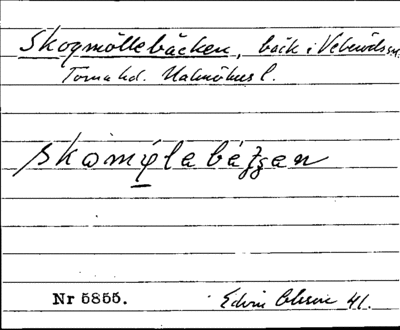 Skogmöllebäcken, bäck i Veberöds sn.
Torna hd. Malmöhus l.
skomýlebéʒʒen
Nr 5855.
Edvin Ohlsson 41.